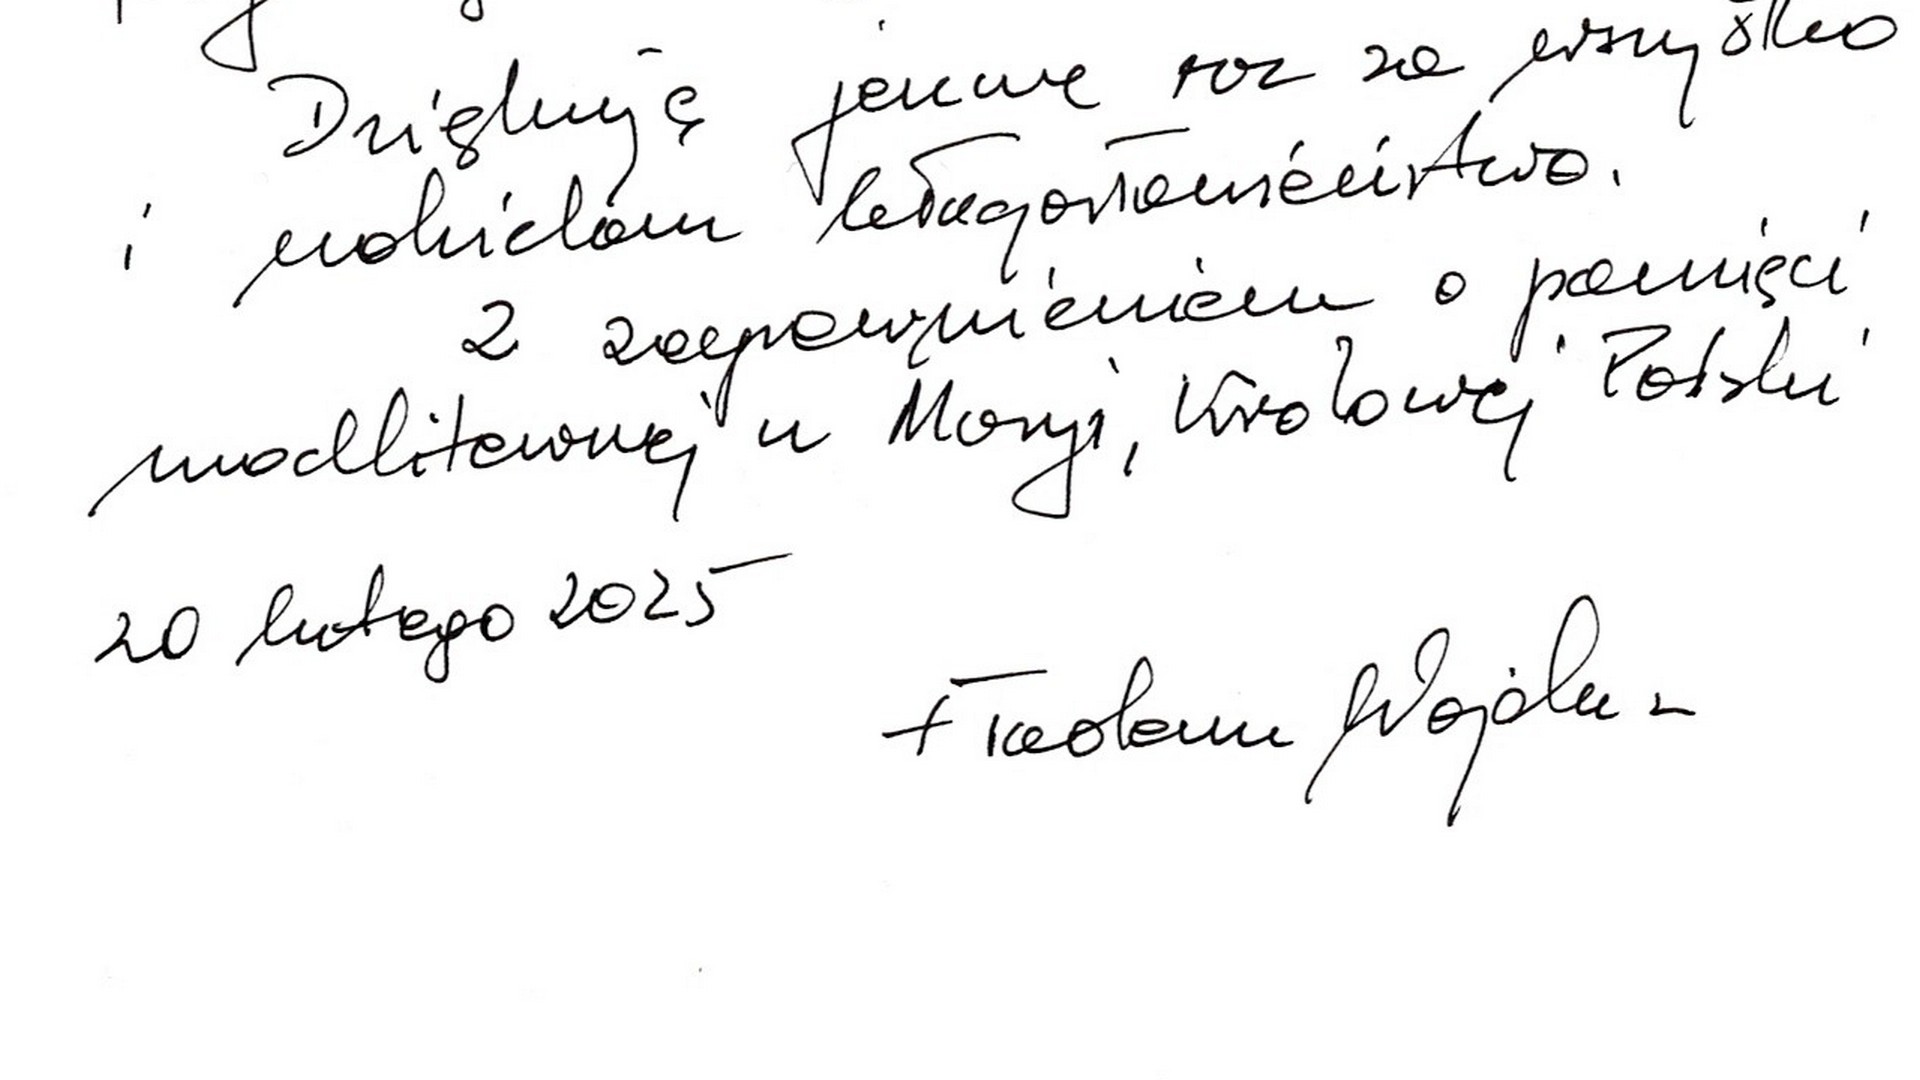 Dziękuję jeszcze raz za wszystko
i udzielam błogosławieństwa.
Z zapewnieniem o pamięci
modlitewnej u Maryi, Królowej Polski
20 lutego 2025
+ Wacław Depo